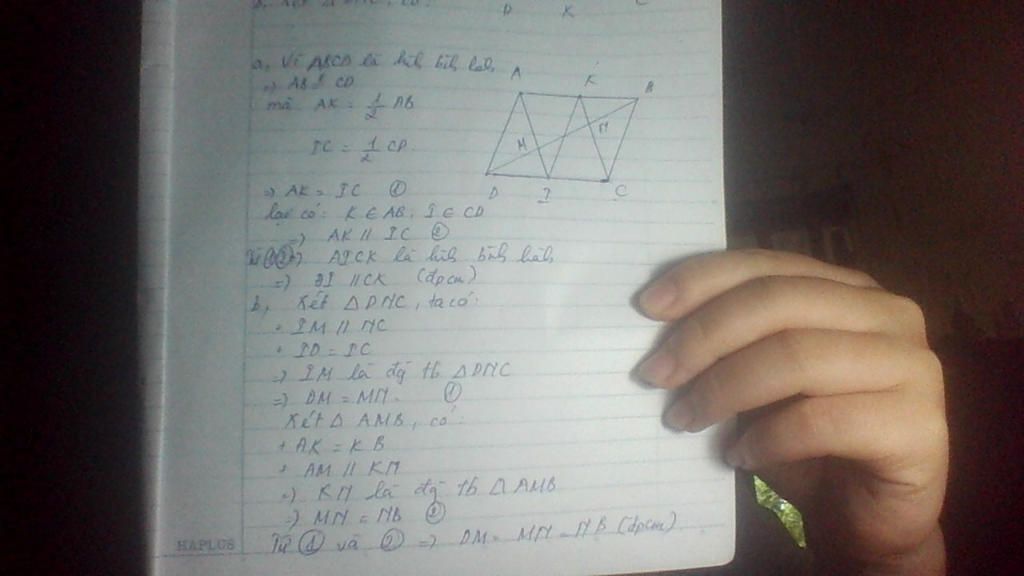 b, Xét Δ DNC, có:
D K C
a, Vì ABCD là hình bình hành
=> AB // CD
mà AK = 1/2 AB
IC = 1/2 CD.
=> AK = IC ①
lại có: K ∈ AB, I ∈ CD
=> AK // IC ②
Từ ①② => AICK là hình bình hành
=> AI // CK (đpcm)
b, Xét Δ DNC, ta có:
+ IM // NC
+ ID = IC
=> IM là đg tb Δ DNC
=> DM = MN. ①
Xét Δ AMB, có:
+ AK = KB
+ AM // KN
=> KN là đg tb Δ AMB
=> MN = NB ②
Từ ① và ② => DM = MN = NB (đpcm)
A K B
M N
D I C
HAPLUS